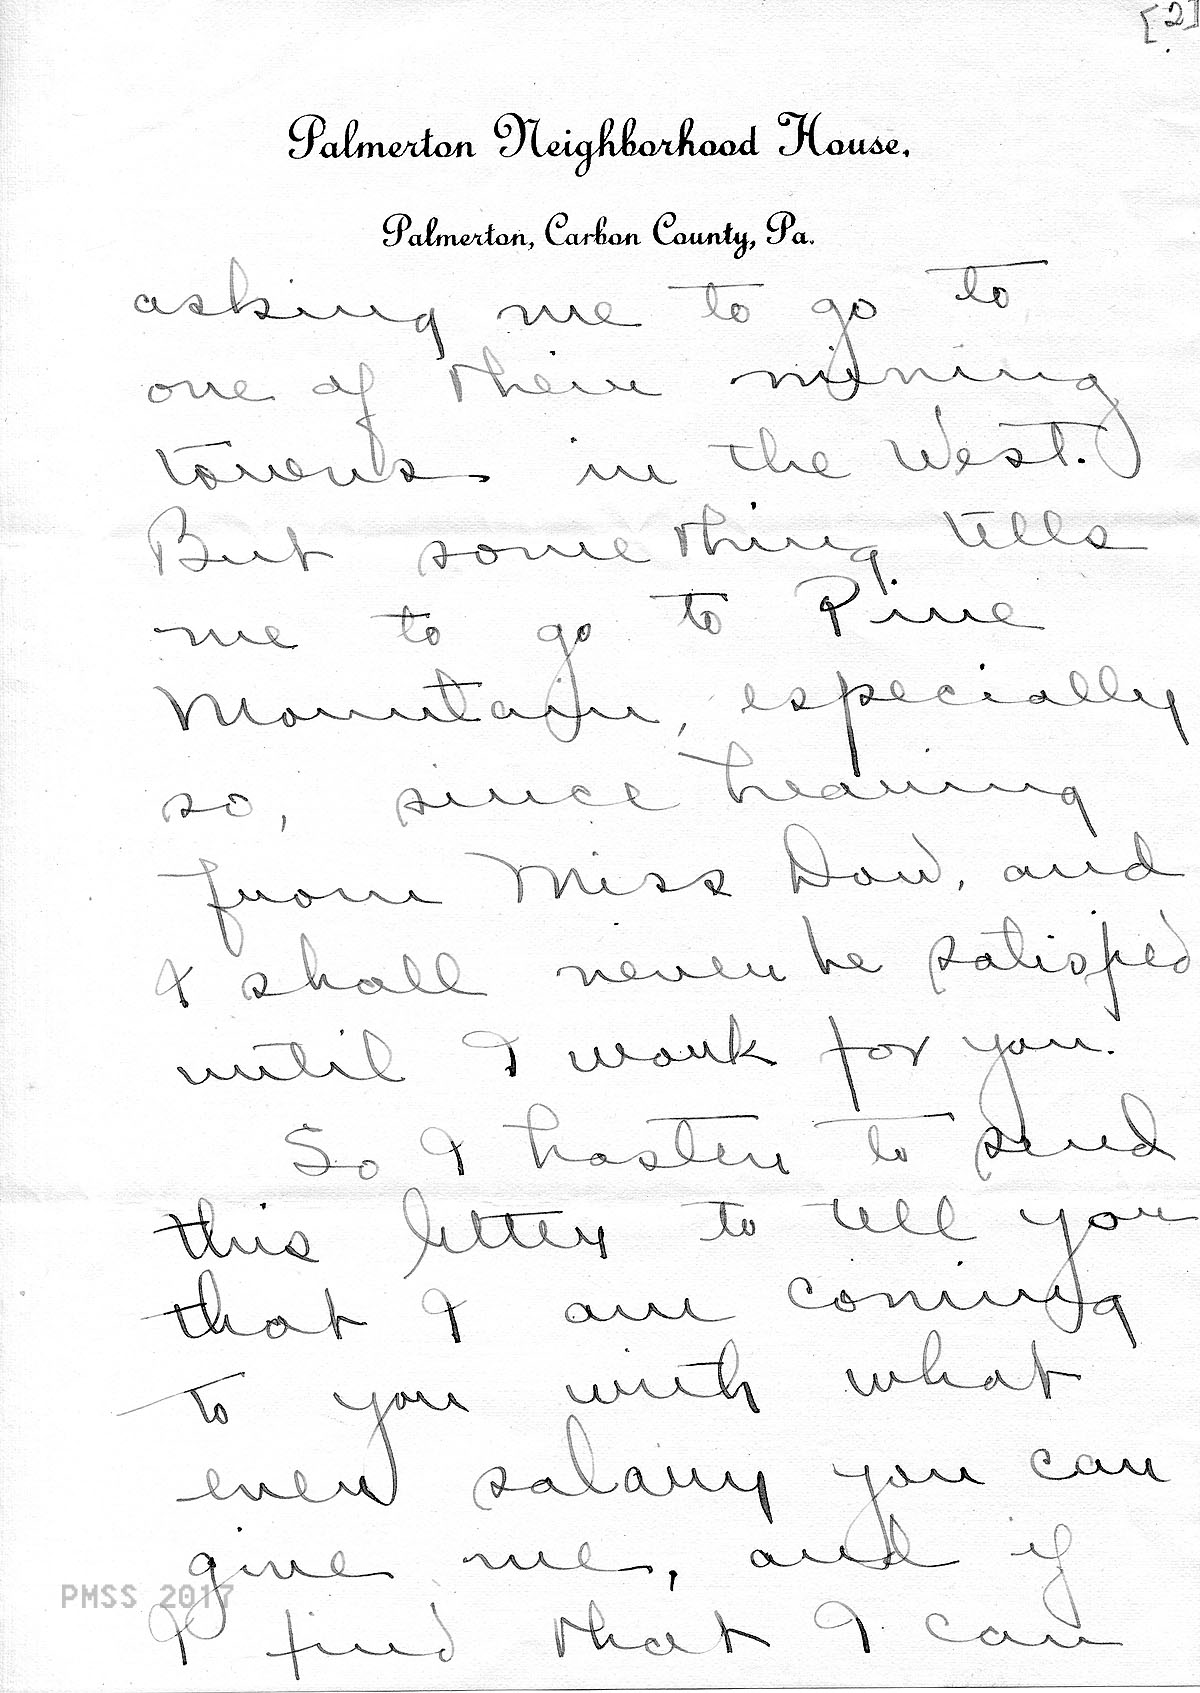 [2]
Palmerton Neighborhood House,
Palmerton, Carbon County, Pa.
asking me to go to
one of their mining
towns in the West.
But something tells
me to go to Pine
Mountain, especially
so, since hearing
from Miss Dow, and
I shall never be satisfied
until I work for you.
So I hasten to send
this letter to tell you
that I am coming
to you with what
ever salary you can
give me, and if
I find that I can
PMSS 2017